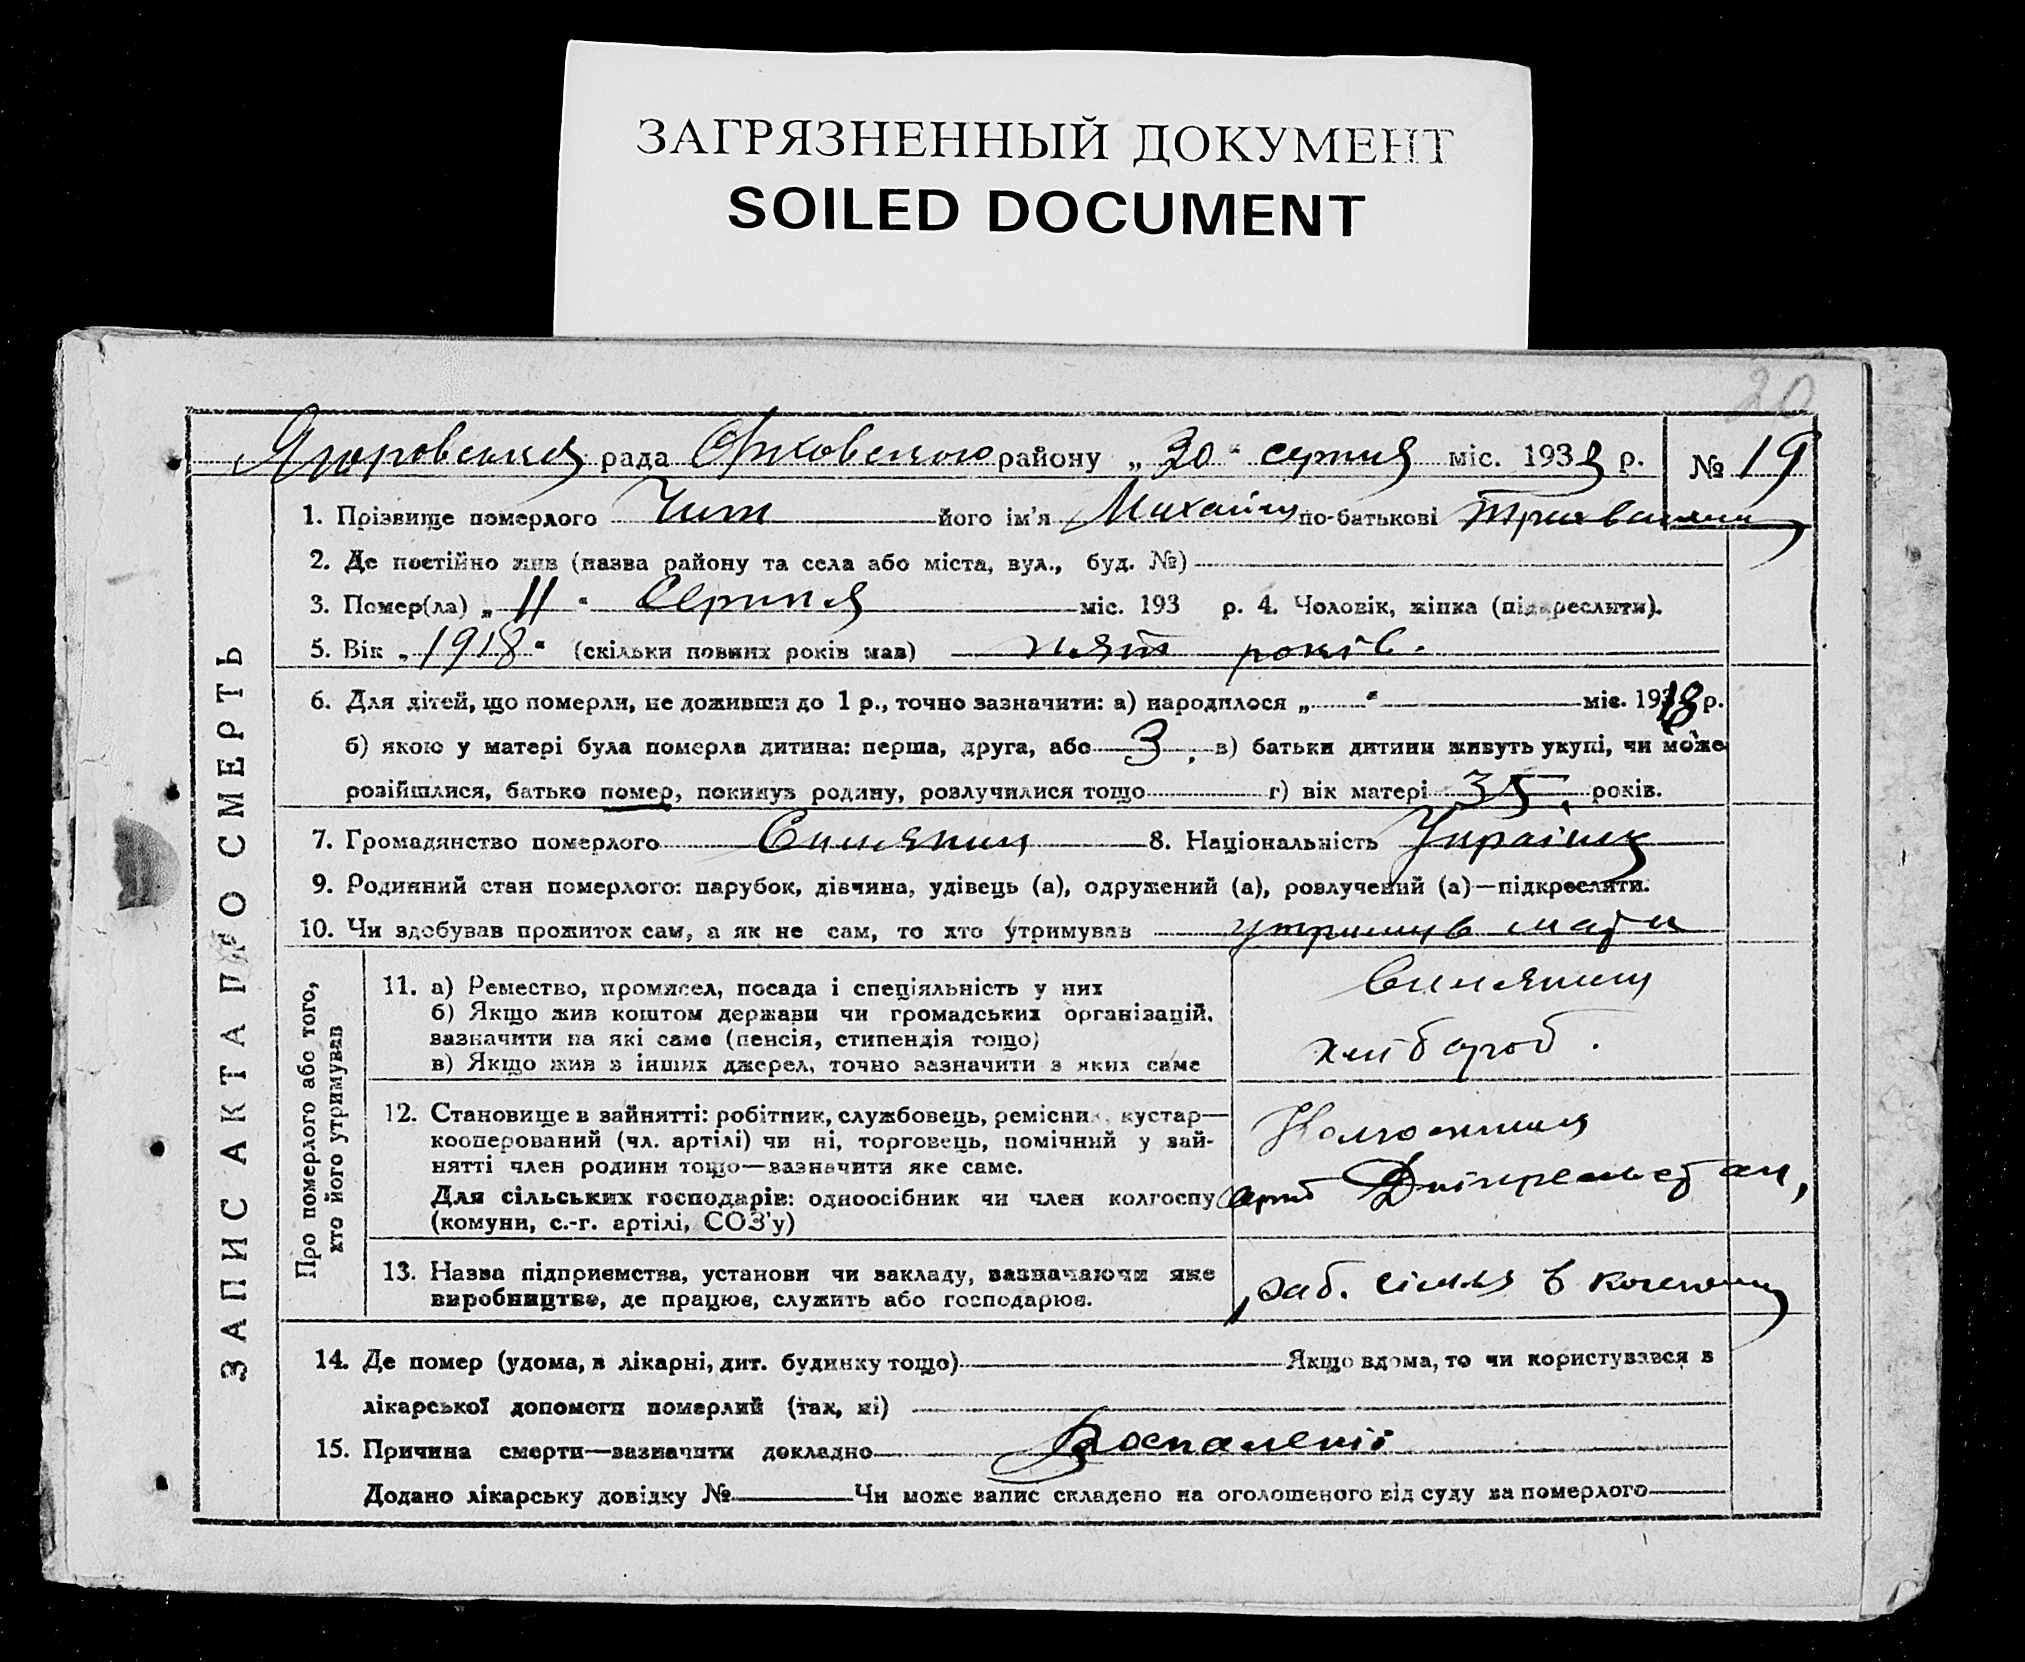 ЗАГРЯЗНЕННЫЙ ДОКУМЕНТ
SOILED DOCUMENT
20
рада району „30“ серпня міс. 1933 р. № 19
1. Прізвище померлого його ім'я Михайло по-батькові
2. Де постійно жив (назва району та села або міста, вул., буд. №)
3. Помер(ла) „11“ Серпня міс. 193 р. 4. Чоловік, жінка (підкреслити).
5. Вік „1918“ (скільки повних років мав) пять років.
6. Для дітей, що померли, не доживши до 1 р., точно зазначити: а) народилося „ “ міс. 1918 р.
б) якою у матері була померла дитина: перша, друга, або 3, в) батьки дитини живуть укупі, чи може
розійшлися, батько помер, покинув родину, розлучилися тощо г) вік матері 35, років.
7. Громадянство померлого Силянин 8. Національність Украінец
9. Родинний стан померлого: парубок, дівчина, удівець (а), одружений (а), розлучений (а)—підкреслити.
10. Чи здобував прожиток сам, а як не сам, то хто утримував утримув мати
ЗАПИС АКТА ПРО СМЕРТЬ
Про померлого або того,
хто його утримував
11. а) Ремество, промисел, посада і спеціяльність у них
б) Якщо жив коштом держави чи громадських організацій,
зазначити на які саме (пенсія, стипендія тощо)
в) Якщо жив з інших джерел, точно зазначити з яких саме
Силянин
хлібороб.
12. Становище в зайнятті: робітник, службовець, ремісник, кустар—
кооперований (чл. артілі) чи ні, торговець, помічний у зай-
нятті член родини тощо—зазначити яке саме.
Для сільських господарів: одноосібник чи член колгоспу
(комуни, с.-г. артілі, СОЗ'у)
13. Назва підприємства, установи чи закладу, зазначаючи яке
виробництво, де працює, служить або господарює.
14. Де помер (удома, в лікарні, дит. будинку тощо) Якщо вдома, то чи користувався з
лікарської допомоги померлий (так, ні)
15. Причина смерти—зазначити докладно Воспаленіі
Додано лікарську довідку № Чи може запис складено на оголошеного від суду за померлого